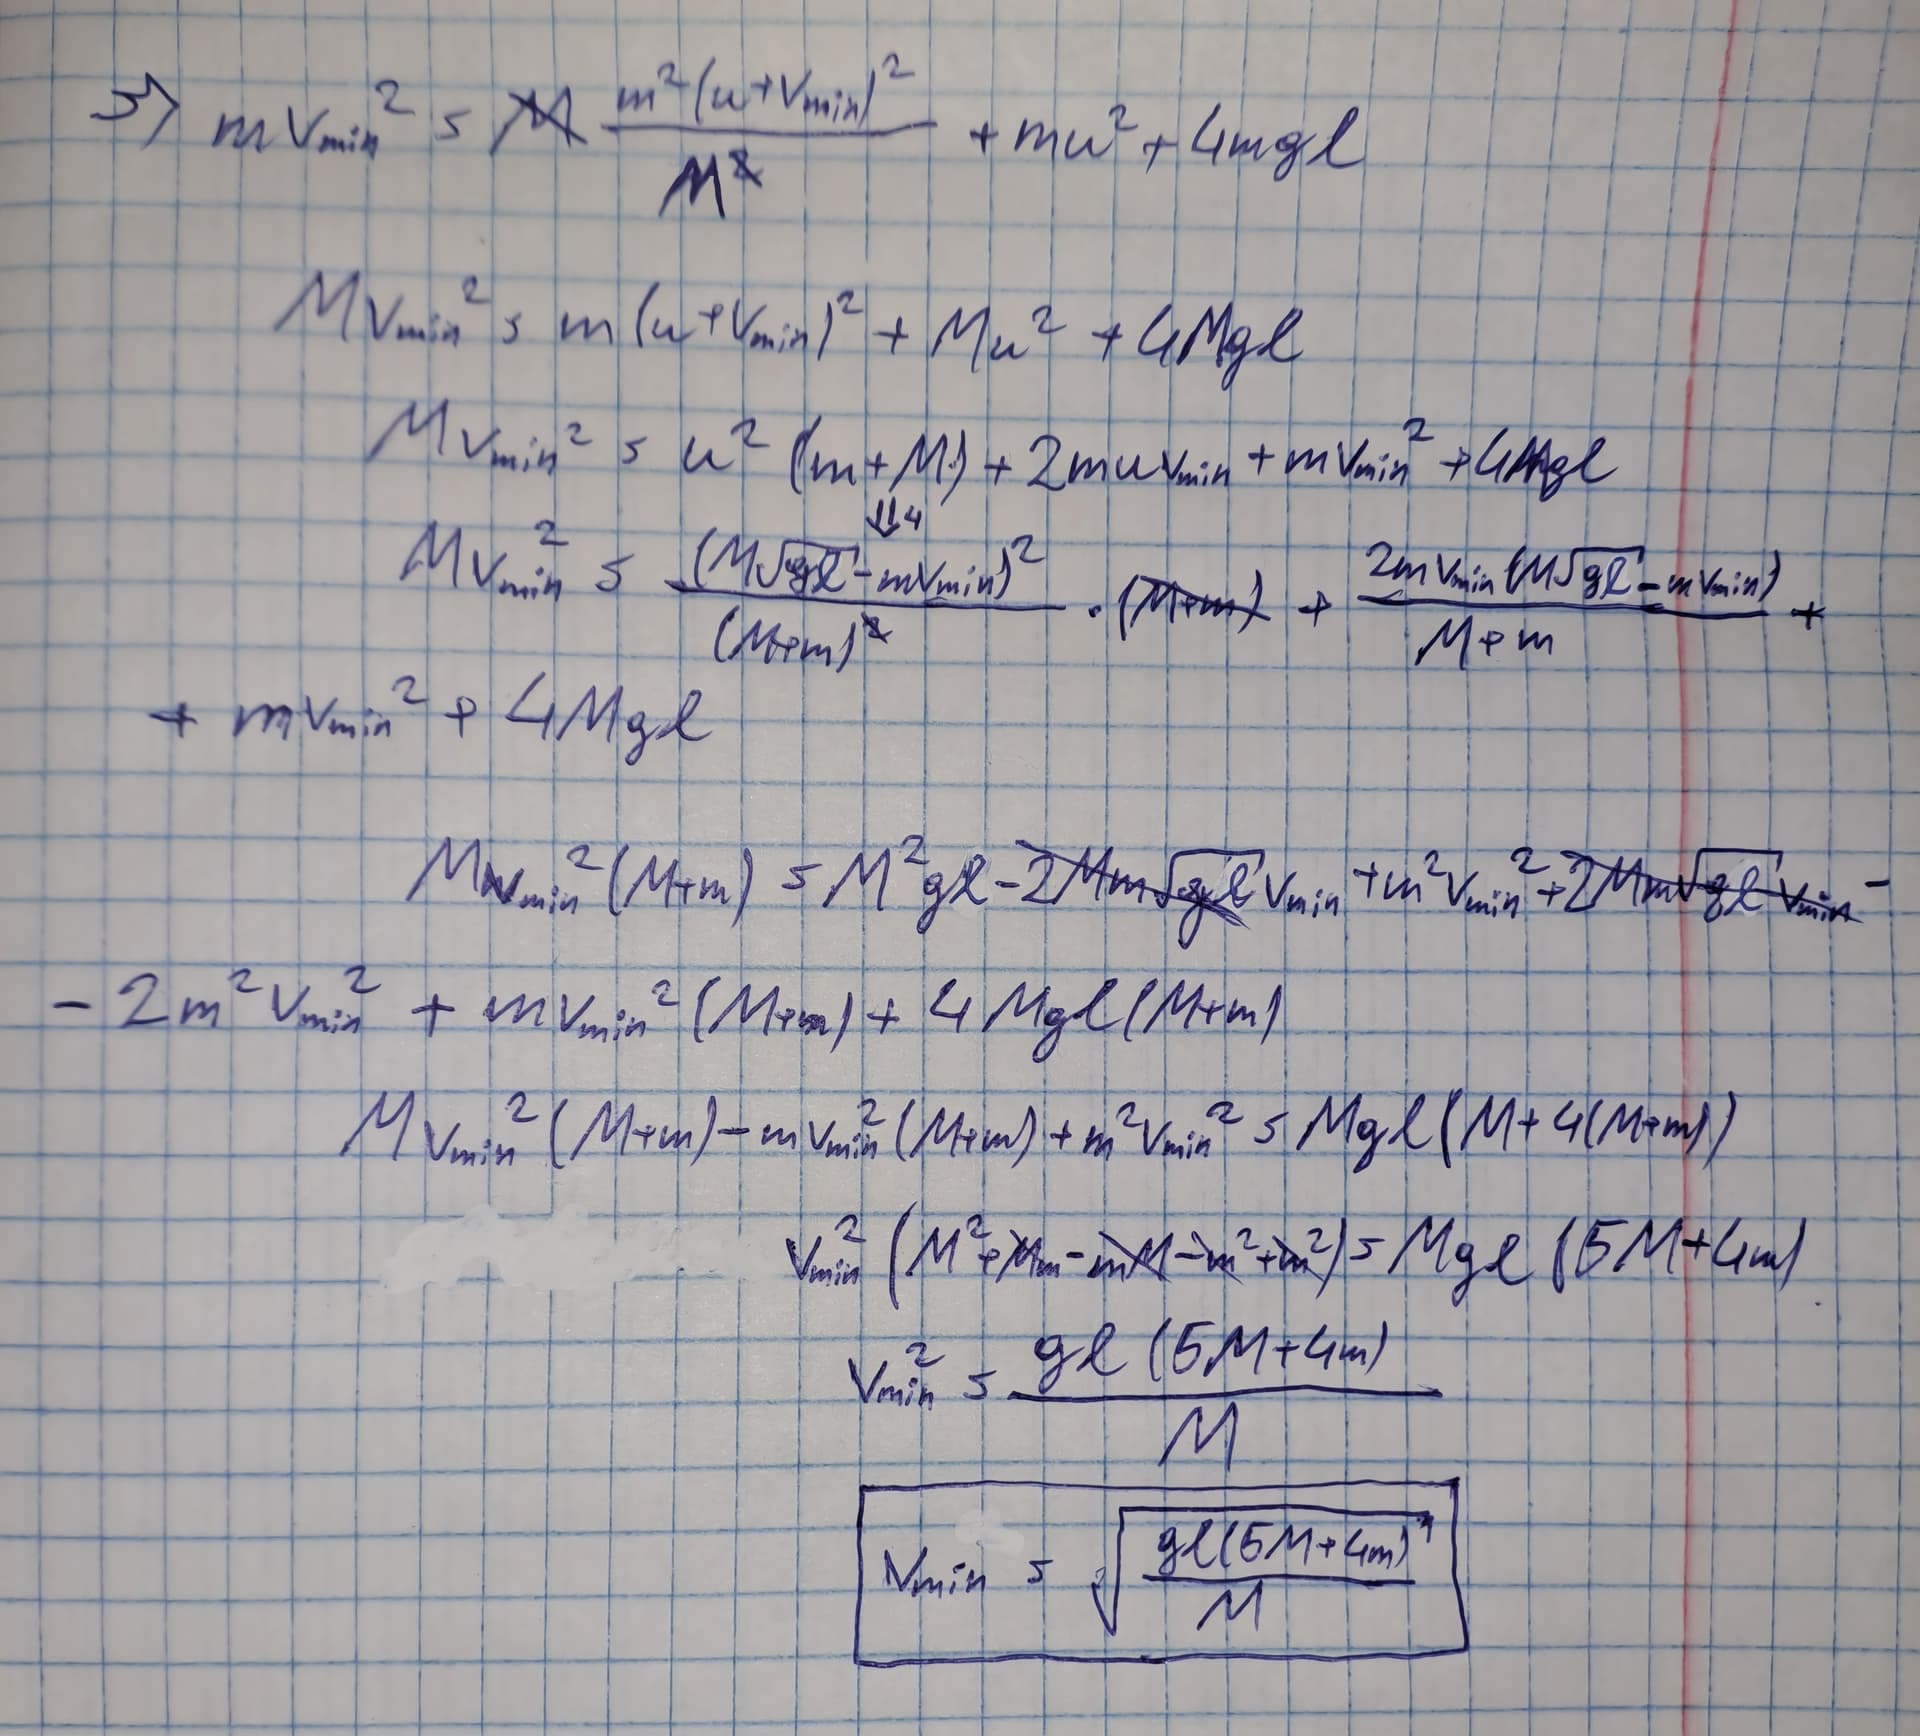 3) m v_min² = M m²(u+v_min)² / M² + mu² + 4mgl
M v_min² = m(u+v_min)² + Mu² + 4Mgl
M v_min² = u²(m+M) + 2muv_min + mv_min² + 4Mgl
⇓4
M v_min² = (M√gl - mv_min)² / (M+m)² · (M+m) + 2mv_min(M√gl - mv_min) / M+m +
+ mv_min² + 4Mgl
Mv_min²(M+m) = M²gl - 2Mm√gl v_min + m²v_min² + 2Mm√gl v_min -
- 2m²v_min² + mv_min²(M+m) + 4Mgl(M+m)
Mv_min²(M+m) - mv_min²(M+m) + m²v_min² = Mgl(M+4(M+m))
v_min²(M²+Mm-mM-m²+m²) = Mgl(5M+4m)
v_min² = gl(5M+4m) / M
v_min = √(gl(5M+4m) / M)